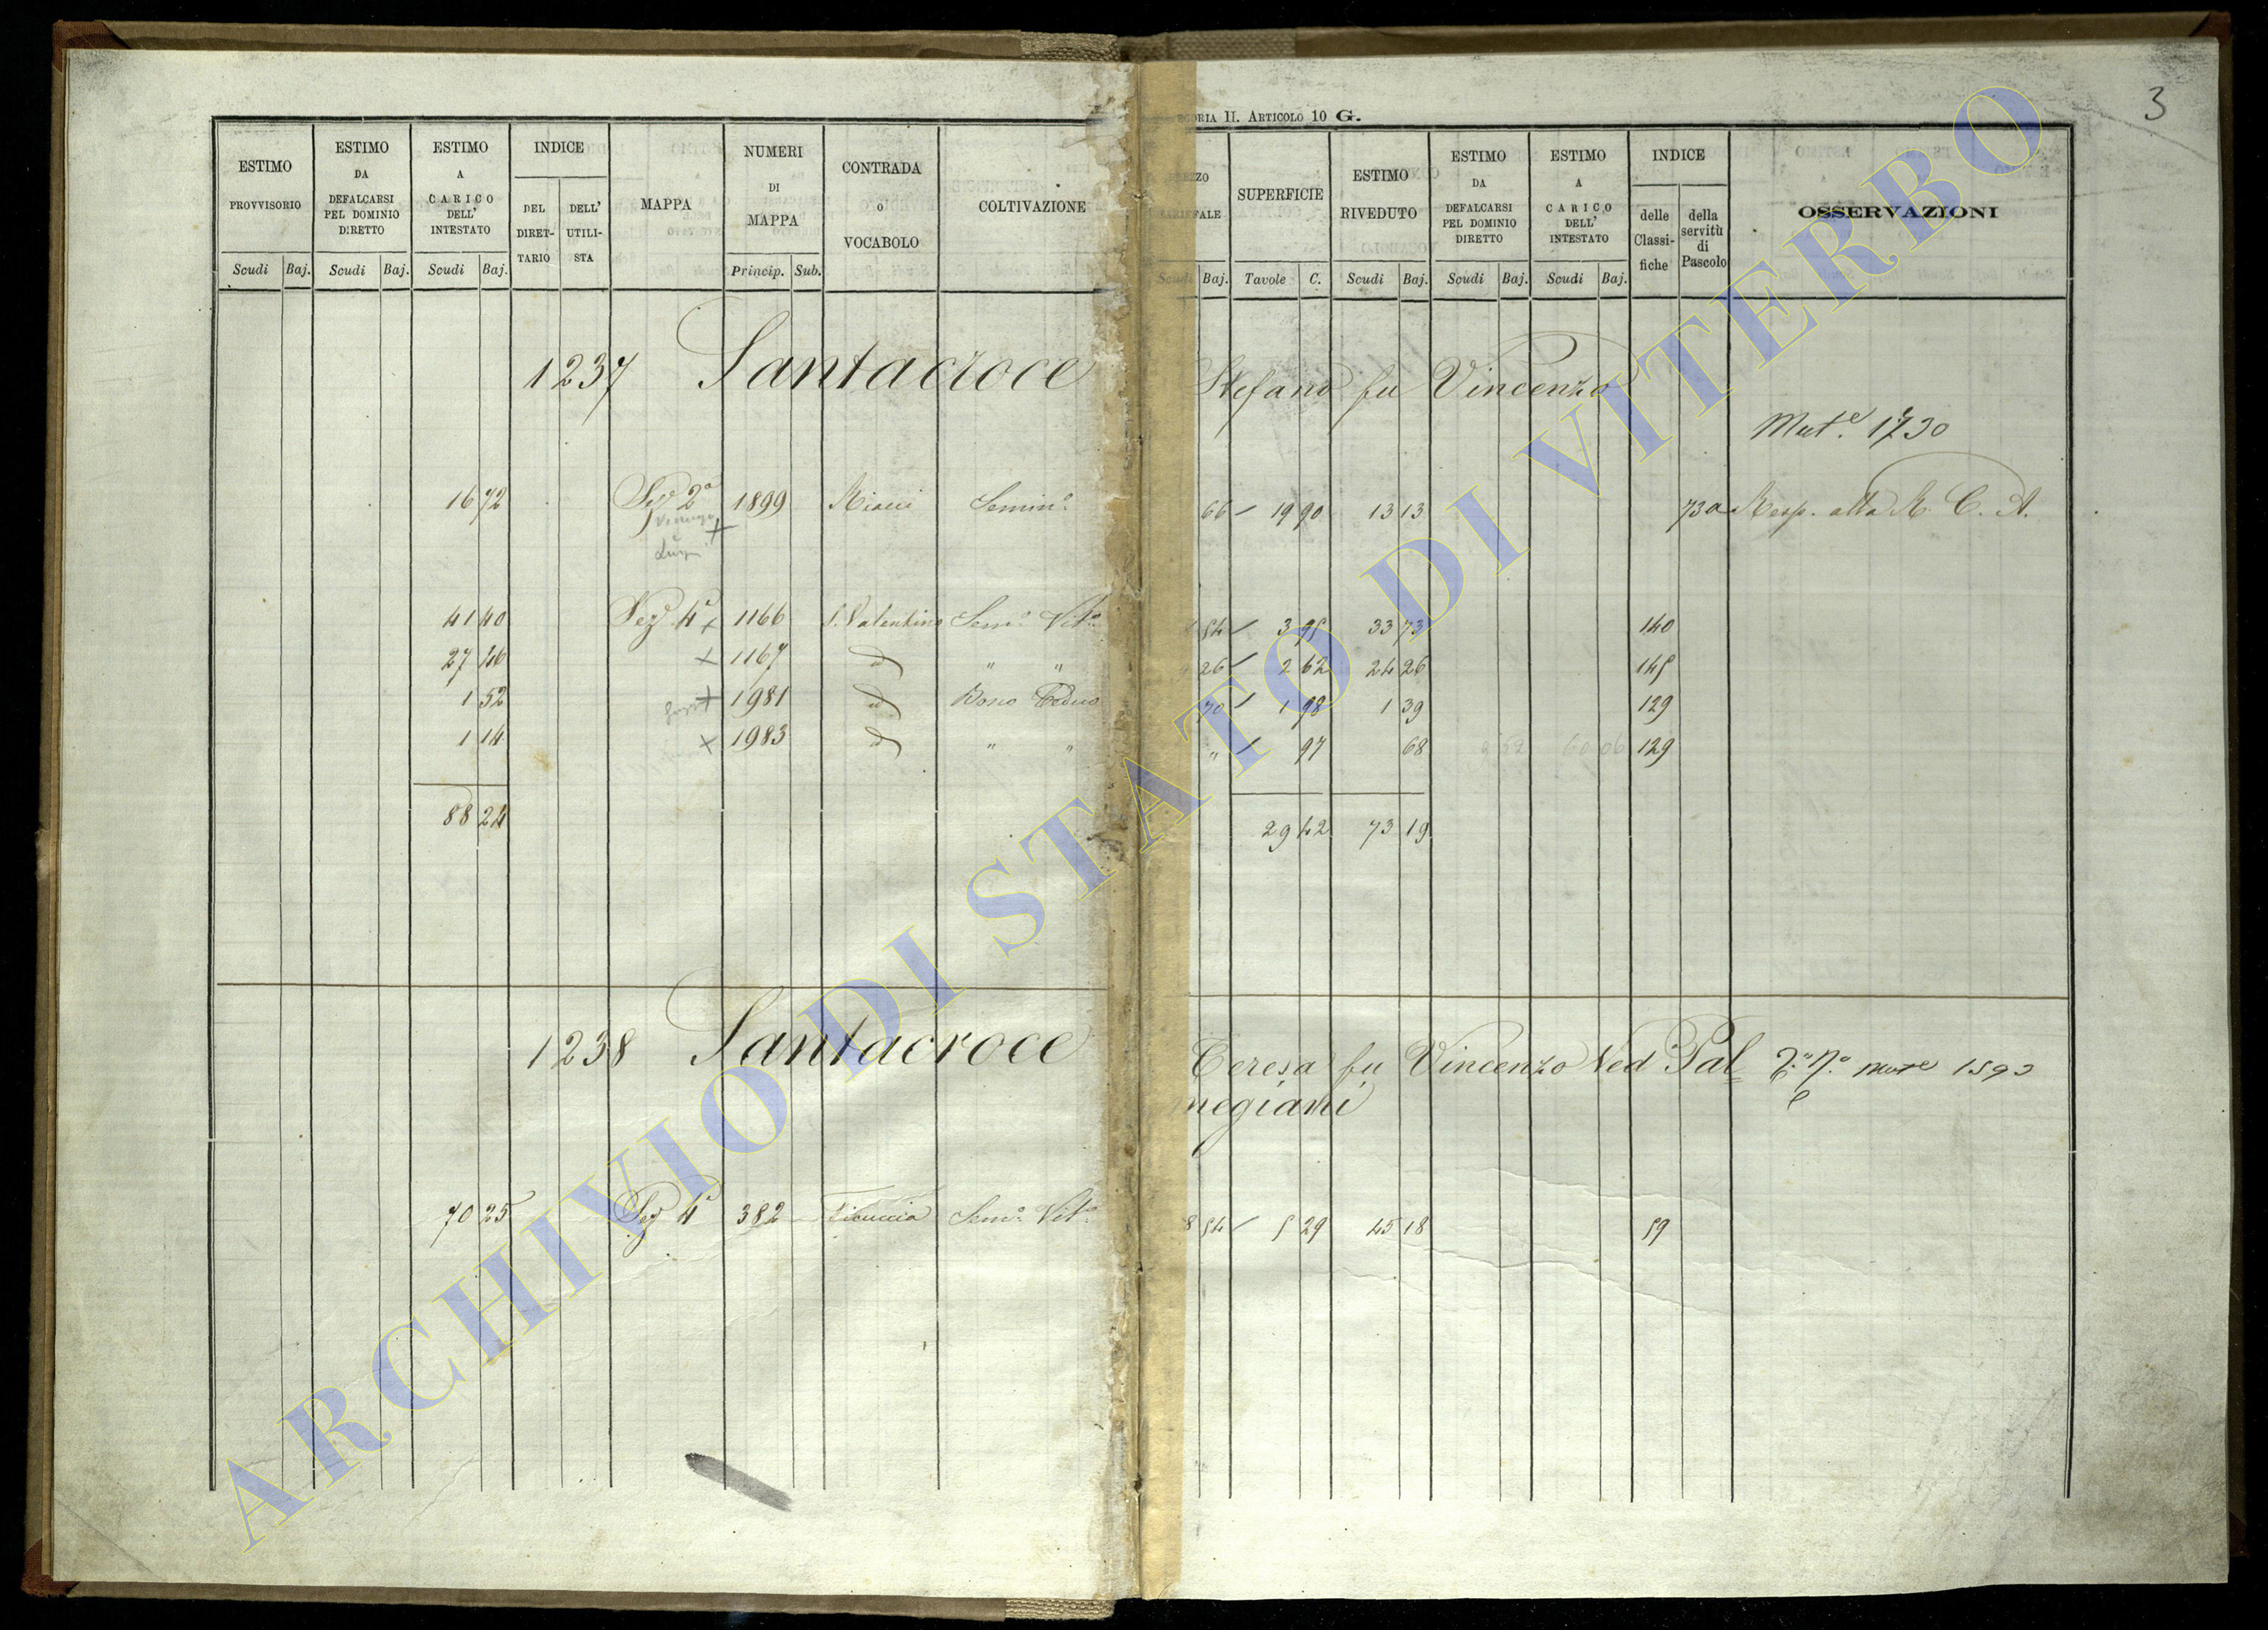 3
GORIA II. ARTICOLO 10 G.
ESTIMO PROVVISORIO
Scudi Baj.
ESTIMO DA DEFALCARSI PEL DOMINIO DIRETTO
Scudi Baj.
ESTIMO A CARICO DELL' INTESTATO
Scudi Baj.
INDICE
DEL DIRET-TARIO
DELL' UTILI-STA
MAPPA
NUMERI DI MAPPA
Princip. Sub.
CONTRADA o VOCABOLO
COLTIVAZIONE
SUPERFICIE
Scudi Baj. Tavole C.
ESTIMO RIVEDUTO
Scudi Baj.
ESTIMO DA DEFALCARSI PEL DOMINIO DIRETTO
Scudi Baj.
ESTIMO A CARICO DELL' INTESTATO
Scudi Baj.
INDICE
delle Classi-fiche
della servitù di Pascolo
OSSERVAZIONI
1237 Santacroce Stefano fu Vincenzo
Mut.e 1730
16 72 Sez 2a 1899 Semin.o 66 19 90 13 13 73a Resp. alla R. C. A.
Luigi
41 40 Sez 4a 1166 S. Valentino Sem.o Vit.o 54 3 95 33 73 140
27 46 1167 d " " 26 2 62 24 26 145
1 52 1981 d Bosco Ceduo 70 1 98 1 39 129
1 14 1983 d " " " 97 68 60 06 129
88 24 29 42 73 19
1238 Santacroce Teresa fu Vincenzo Ved Pal=
megiani
1593
70 25 Sez 4a 382 Ficuccia Sem.o Vit.o 8 54 5 29 45 18 59
ARCHIVIO DI STATO DI VITERBO